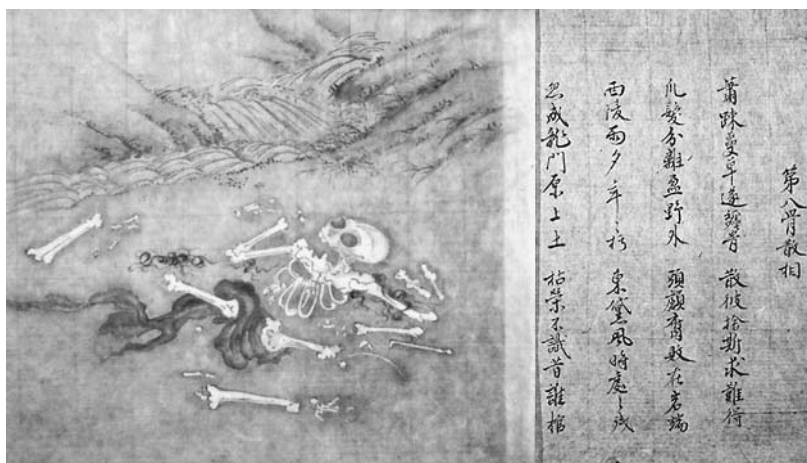 第八骨散相
蕭踈蔓草遂纏骨 散彼捨斯求難得
爪髮分離盈野外 頭顱腐敗在岩端
西陵雨夕年々朽 東黛風時處々残
忽成龍門原上土 枯榮不識昔誰棺